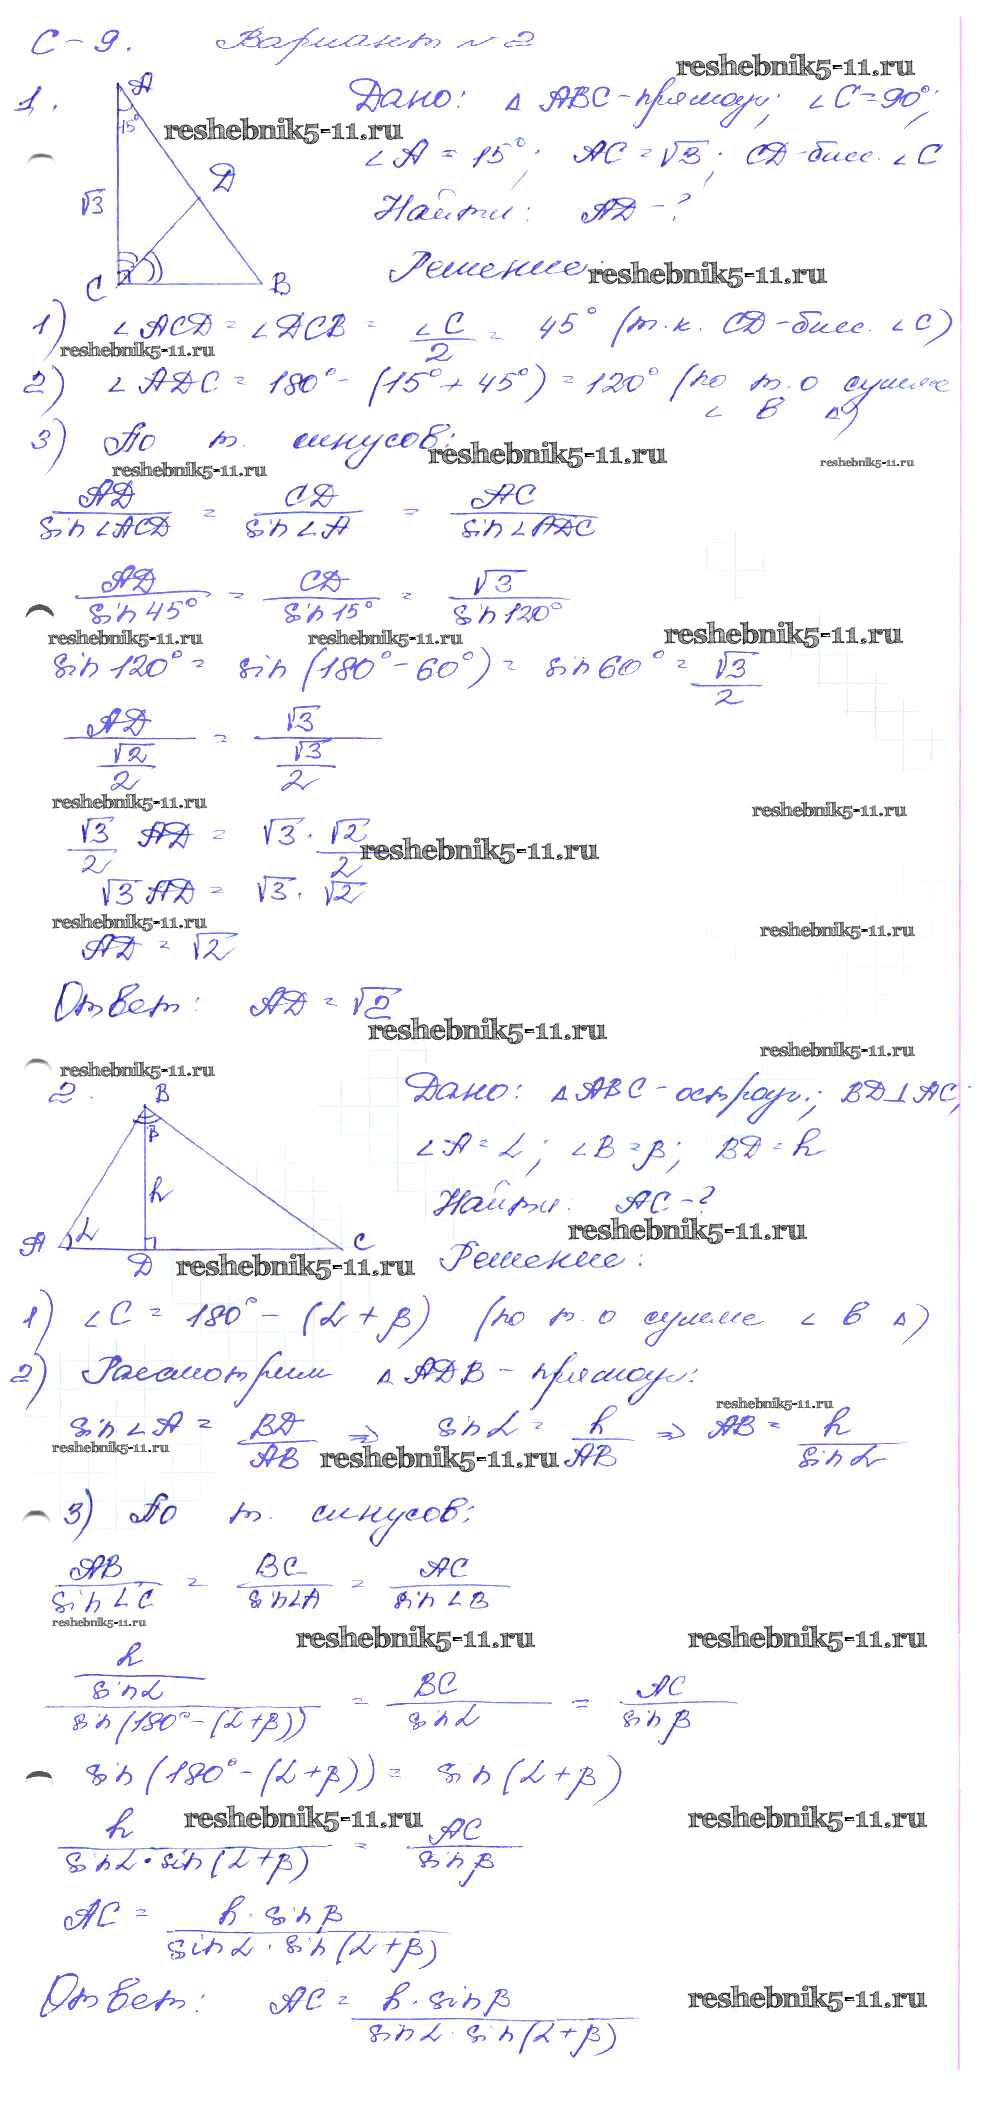 С-9. Вариант №2
reshebnik5-11.ru
1. Дано: Δ ABC-прямоуг; ∠C=90°;
A 15° √3 D C B
reshebnik5-11.ru
∠A = 15°; AC = √3; CD-бисс. ∠C
Найти: AD-?
Решение:
reshebnik5-11.ru
1) ∠ACD = ∠DCB = ∠C/2 = 45° (т.к. CD-бисс. ∠C)
reshebnik5-11.ru
2) ∠ADC = 180° - (15° + 45°) = 120° (по т. о сумме
∠ в Δ)
3) По т. синусов:
reshebnik5-11.ru
reshebnik5-11.ru
reshebnik5-11.ru
AD/sin∠ACD = CD/sin∠A = AC/sin∠ADC
AD/sin45° = CD/sin15° = √3/sin120°
reshebnik5-11.ru
reshebnik5-11.ru
reshebnik5-11.ru
sin120° = sin(180°-60°) = sin60° = √3/2
AD/(√2/2) = √3/(√3/2)
reshebnik5-11.ru
reshebnik5-11.ru
√3/2 AD = √3 · √2/2
reshebnik5-11.ru
√3 AD = √3 · √2
reshebnik5-11.ru
reshebnik5-11.ru
AD = √2
Ответ: AD = √2
reshebnik5-11.ru
reshebnik5-11.ru
reshebnik5-11.ru
2. Дано: Δ ABC-остроуг.; BD⊥AC;
B β h A α D C
∠A = α; ∠B = β; BD = h
Найти: AC-?
reshebnik5-11.ru
reshebnik5-11.ru
Решение:
1) ∠C = 180° - (α + β) (по т. о сумме ∠ в Δ)
2) Рассмотрим Δ ADB - прямоуг:
reshebnik5-11.ru
sin∠A = BD/AB ⇒ sinα = h/AB ⇒ AB = h/sinα
reshebnik5-11.ru
reshebnik5-11.ru
3) По т. синусов:
AB/sin∠C = BC/sin∠A = AC/sin∠B
reshebnik5-11.ru
reshebnik5-11.ru
reshebnik5-11.ru
(h/sinα)/sin(180°-(α+β)) = BC/sinα = AC/sinβ
sin(180°-(α+β)) = sin(α+β)
reshebnik5-11.ru
reshebnik5-11.ru
h/(sinα·sin(α+β)) = AC/sinβ
AC = h·sinβ/(sinα·sin(α+β))
Ответ: AC = h·sinβ/(sinα·sin(α+β))
reshebnik5-11.ru